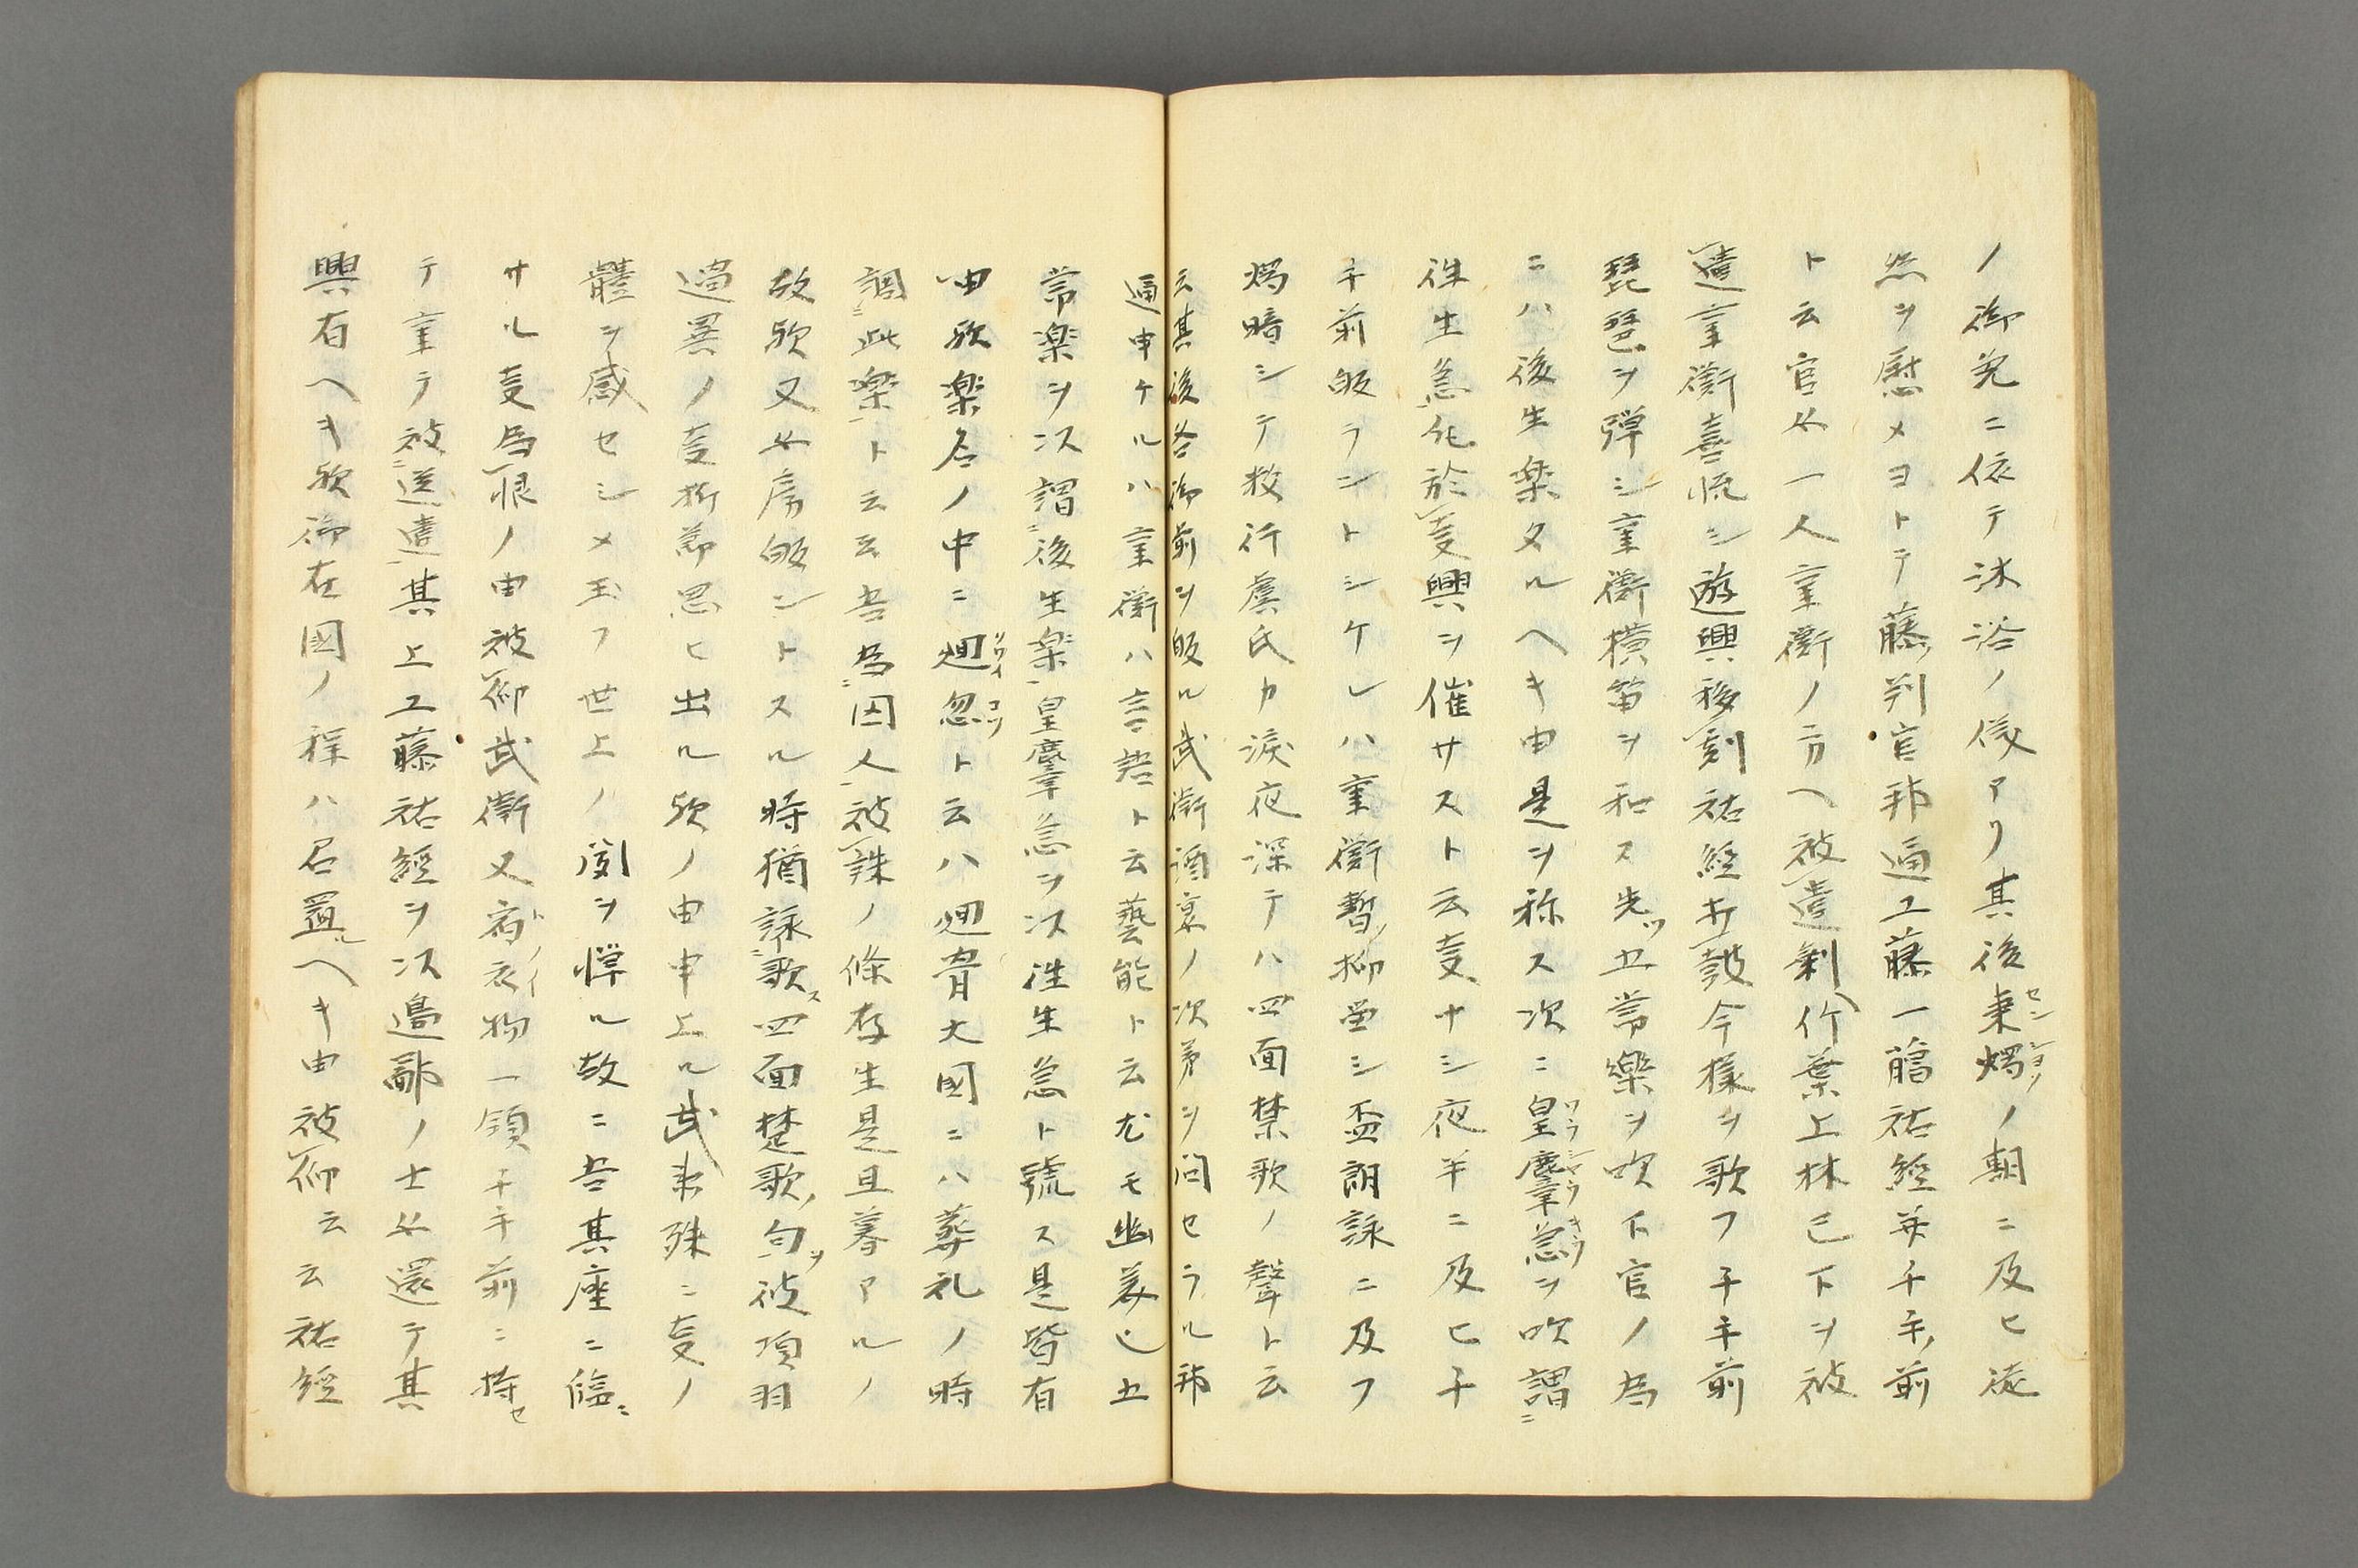 ノ御免ニ依テ沐浴ノ儀アリ其後秉燭ノ朝ニ及ヒ徒
然ヲ慰メヨトテ藤判官邦通工藤一﨟祐經并千手前
ト云官女一人重衡ノ方ヘ被遣剰竹葉上林已下ヲ被
遣重衡喜悦シ遊興移刻祐經打皷今様ヲ歌フ千手前
琵琶ヲ弾シ重衡横笛ヲ和ス先ツ五常樂ヲ吹下官ノ為
ニハ後生楽タルヘキ由是ヲ称ス次ニ皇麞急ヲ吹謂
往生急化於㕝興ヲ催サスト云㕝ナシ夜半ニ及ヒ千
手前皈ラントシケレハ重衡暫抑留シ盃朗詠ニ及フ
燭暗シテ数行虞氏カ涙夜深テハ四面楚歌ノ聲ト云
云其後各御前ヲ皈ル武衛酒宴ノ次第ヲ問セラル邦
通申ケルハ重衡ハ言語ト云藝能ト云尤モ幽美也五
常楽ヲ以謂後生楽皇麞急ヲ以往生急ト號ス是皆有
由歟楽名ノ中ニ廻忽ト云ハ廻骨大國ニハ葬礼ノ時
調此楽ト云云吾為囚人被誅ノ條存生是旦暮アルノ
故歟又女房皈ントスル時猶詠歌ス四面楚歌ノ句ヲ彼項羽
過呉ノ㕝折節思ヒ出ル歟ノ由申上ル武衛殊ニ㕝ノ
體ヲ感セシメ玉フ世上ノ聞ヲ憚ル故ニ吾其座ニ臨ニ
サル㕝為恨ノ由被仰武衛又宿衣物一領千手前ニ持セ
テ重テ被送遣其上工藤祐經ヲ以邊鄙ノ士女還テ其
興有ヘキ歟御在國ノ程ハ召置ルヘキ由被仰云云祐經